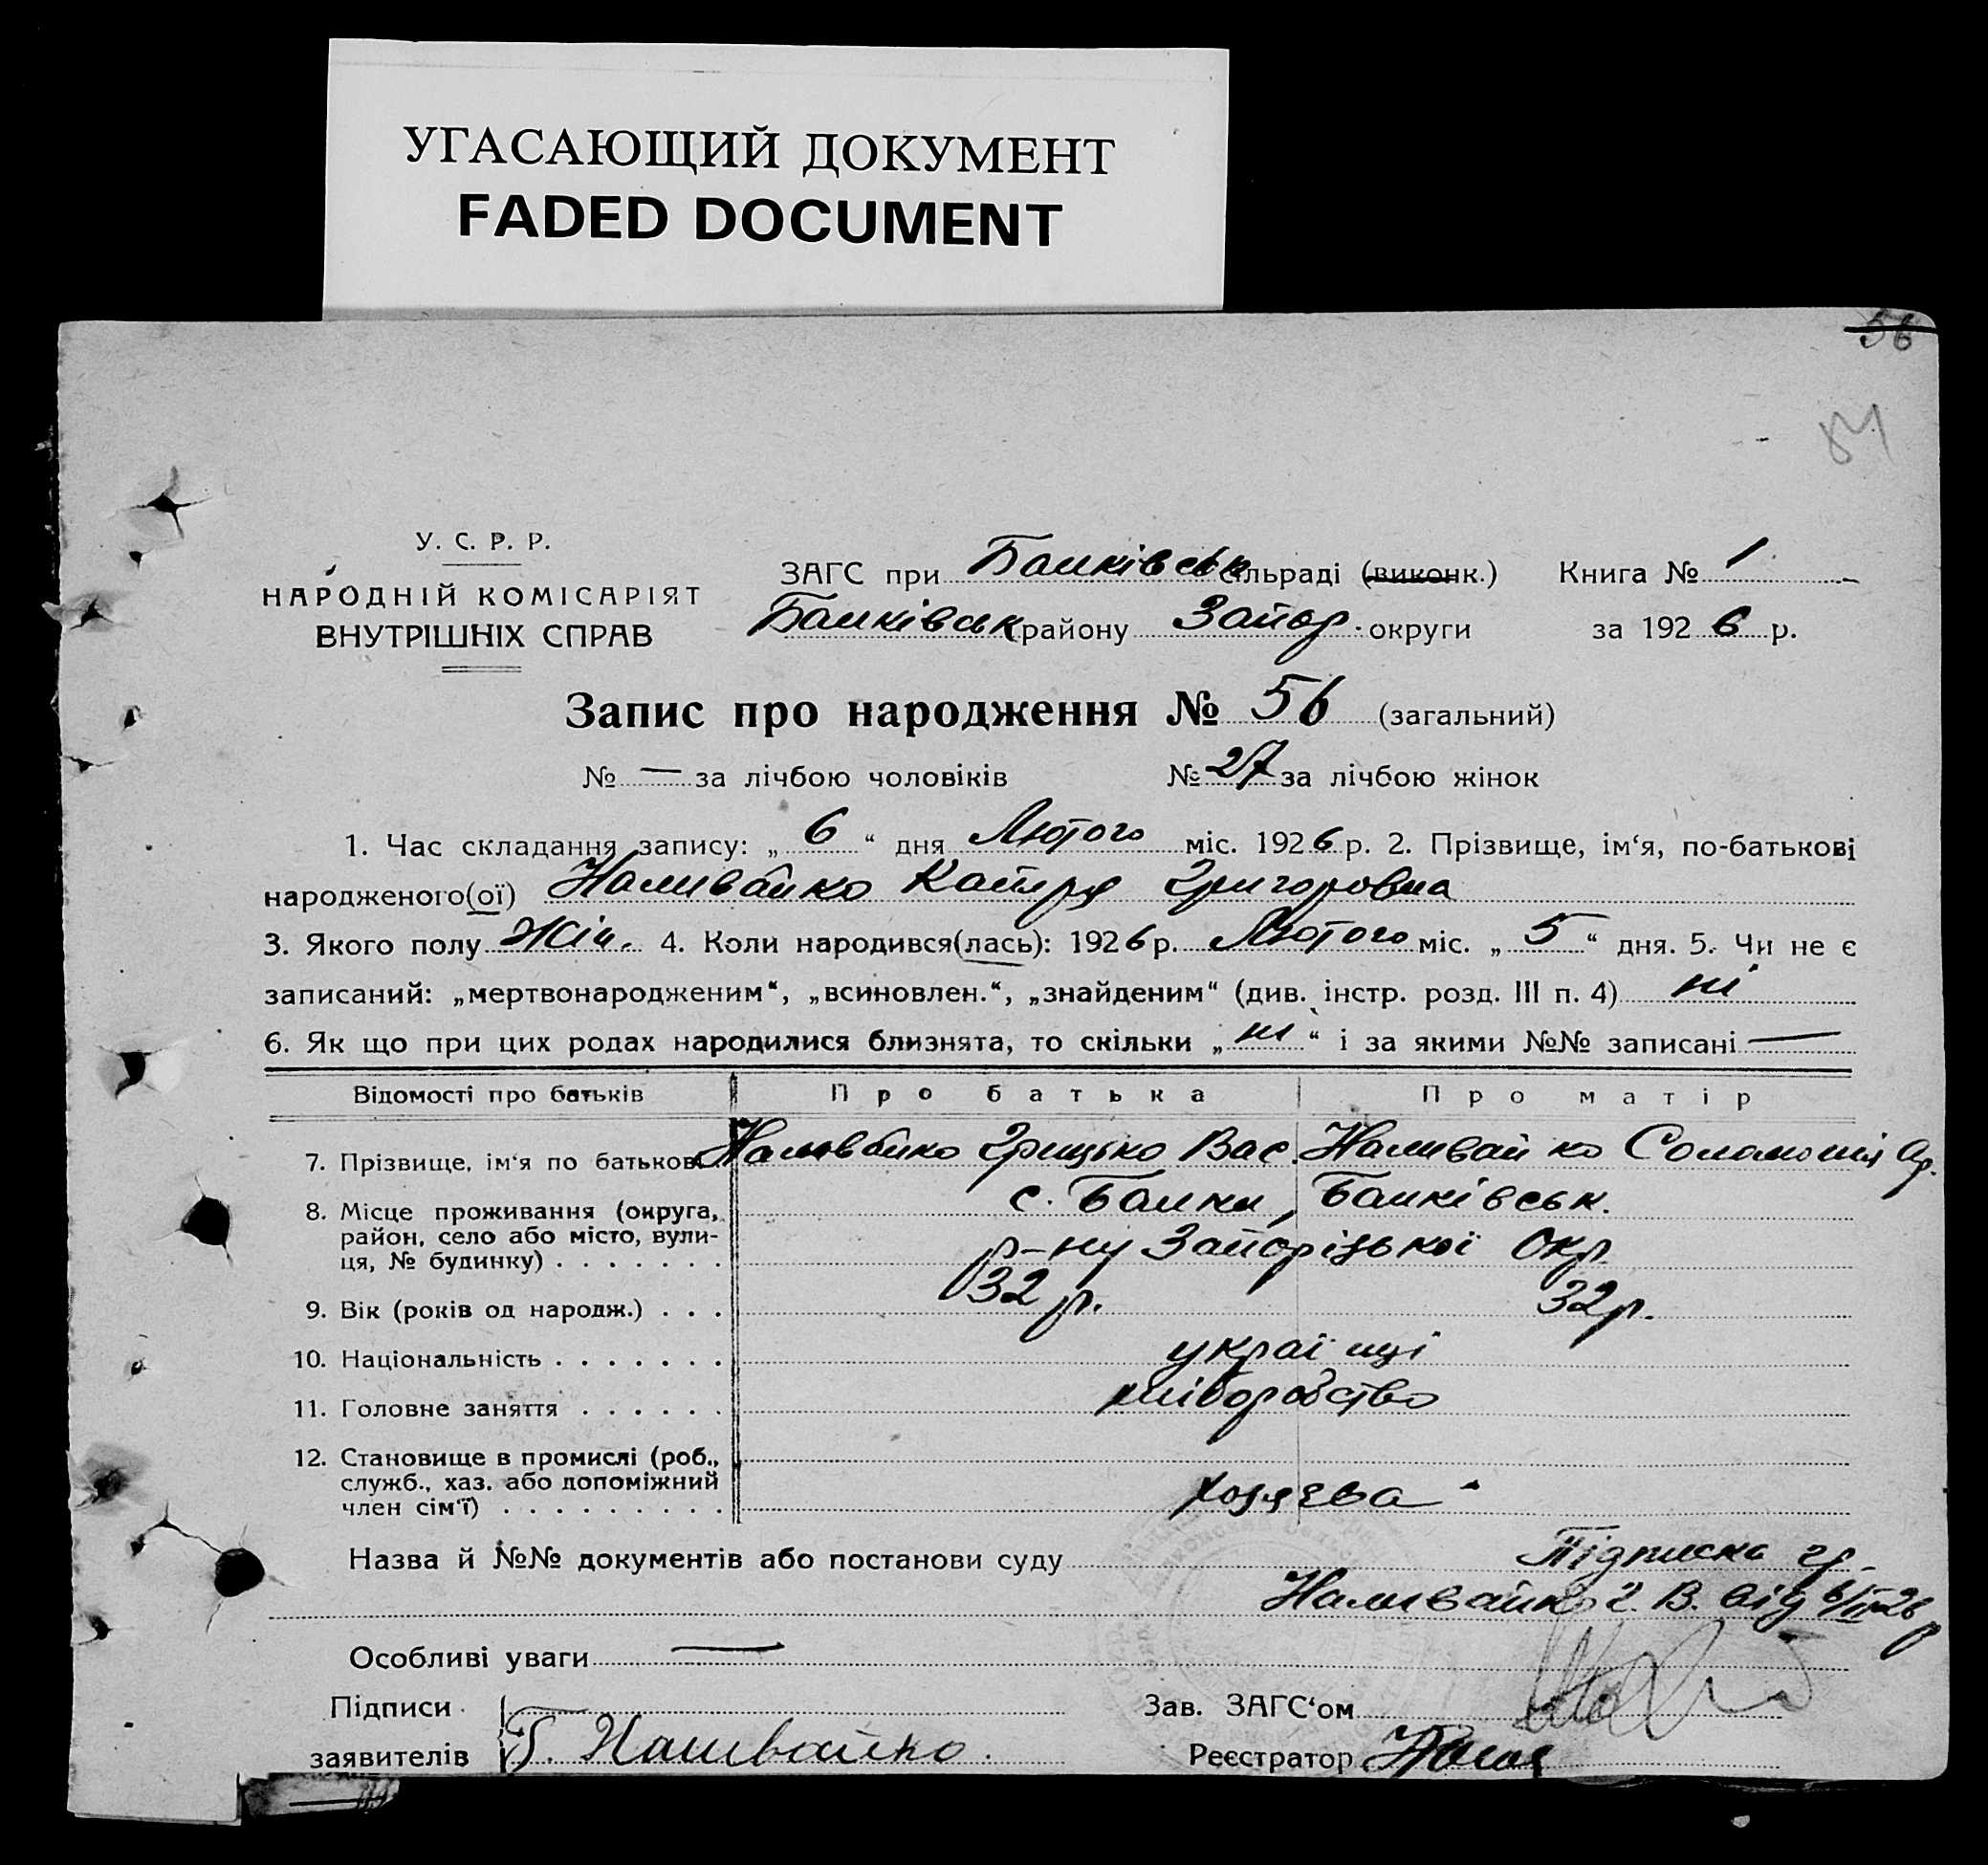 УГАСАЮЩИЙ ДОКУМЕНТ
FADED DOCUMENT
56
84
У. С. Р. Р.
НАРОДНІЙ КОМІСАРІЯТ
ВНУТРІШНІХ СПРАВ
ЗАГС при Балківськ сільраді (виконк.) Книга № 1
Балківськ району Запор. округи за 1926 р.
Запис про народження № 56 (загальний)
№ — за лічбою чоловіків № 27 за лічбою жінок
1. Час складання запису: „6“ дня Лютого міс. 1926 р. 2. Прізвище, ім‘я, по-батькові
народженого(ої) Наливайко Катря Григоровна
3. Якого полу Жін. 4. Коли народився(лась): 1926 р. Лютого міс. „5“ дня. 5. Чи не є
записаний: „мертвонародженим“, „всиновлен.“, „знайденим“ (див. інстр. розд. III п. 4) ні
6. Як що при цих родах народилися близнята, то скільки „ні“ і за якими №№ записані —
Відомості про батьків Про батька Про матір
7. Прізвище, ім‘я по батькові Наливайко Грицько Вас. Наливайко Соломонія
8. Місце проживання (округа, с. Балки, Балківськ.
район, село або місто, вули- р-ну Запорізької Окр.
ця, № будинку) . . . . . . .
9. Вік (років од народж.) . . . 32 р. 32 р.
10. Національність . . . . . . . україці
11. Головне заняття . . . . . . хліборобство
12. Становище в промислі (роб.,
служб., хаз. або допоміжний
член сім‘ї) . . . . . . . . . хозяева
Назва й №№ документів або постанови суду Підписка гр.
Наливайко Г. В. від 6/II-26 р
Особливі уваги —
Підписи Зав. ЗАГС‘ом
заявителів Г. Наливайко. Реєстратор